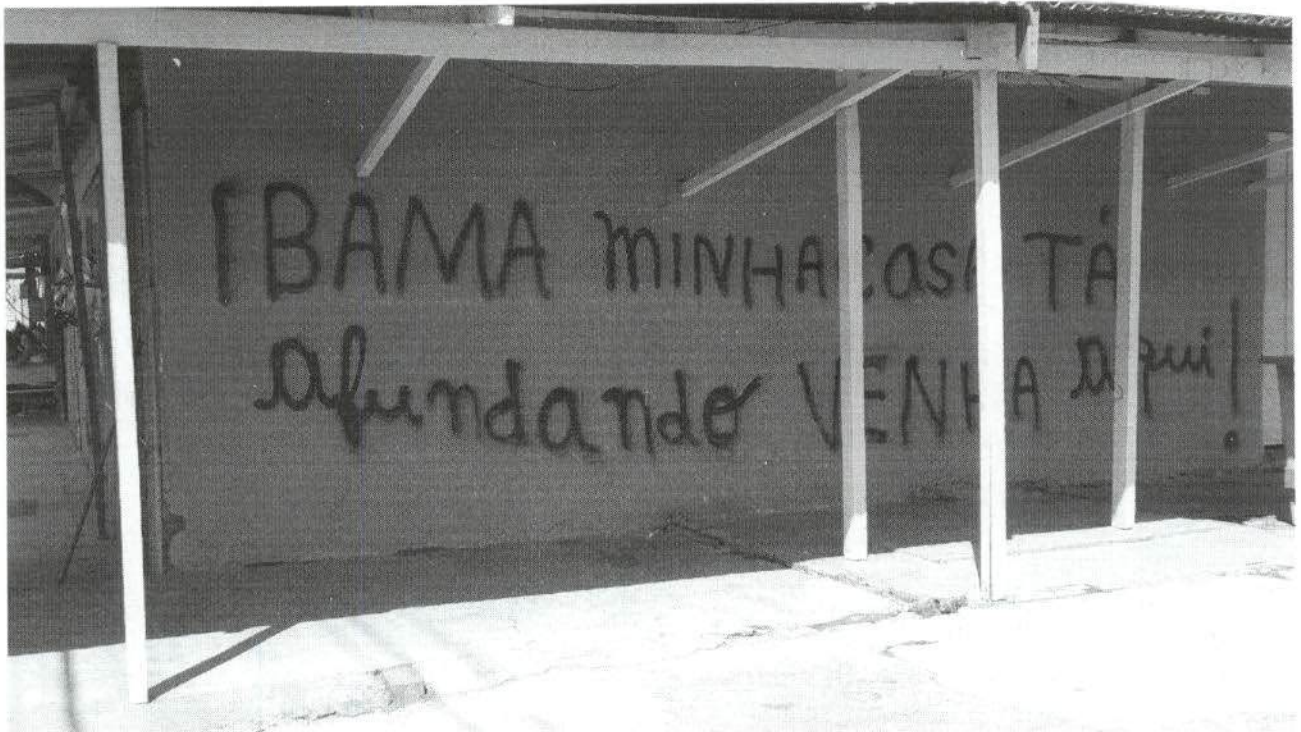 IBAMA MINHA CASA TÁ
afundando VENHA aqui!